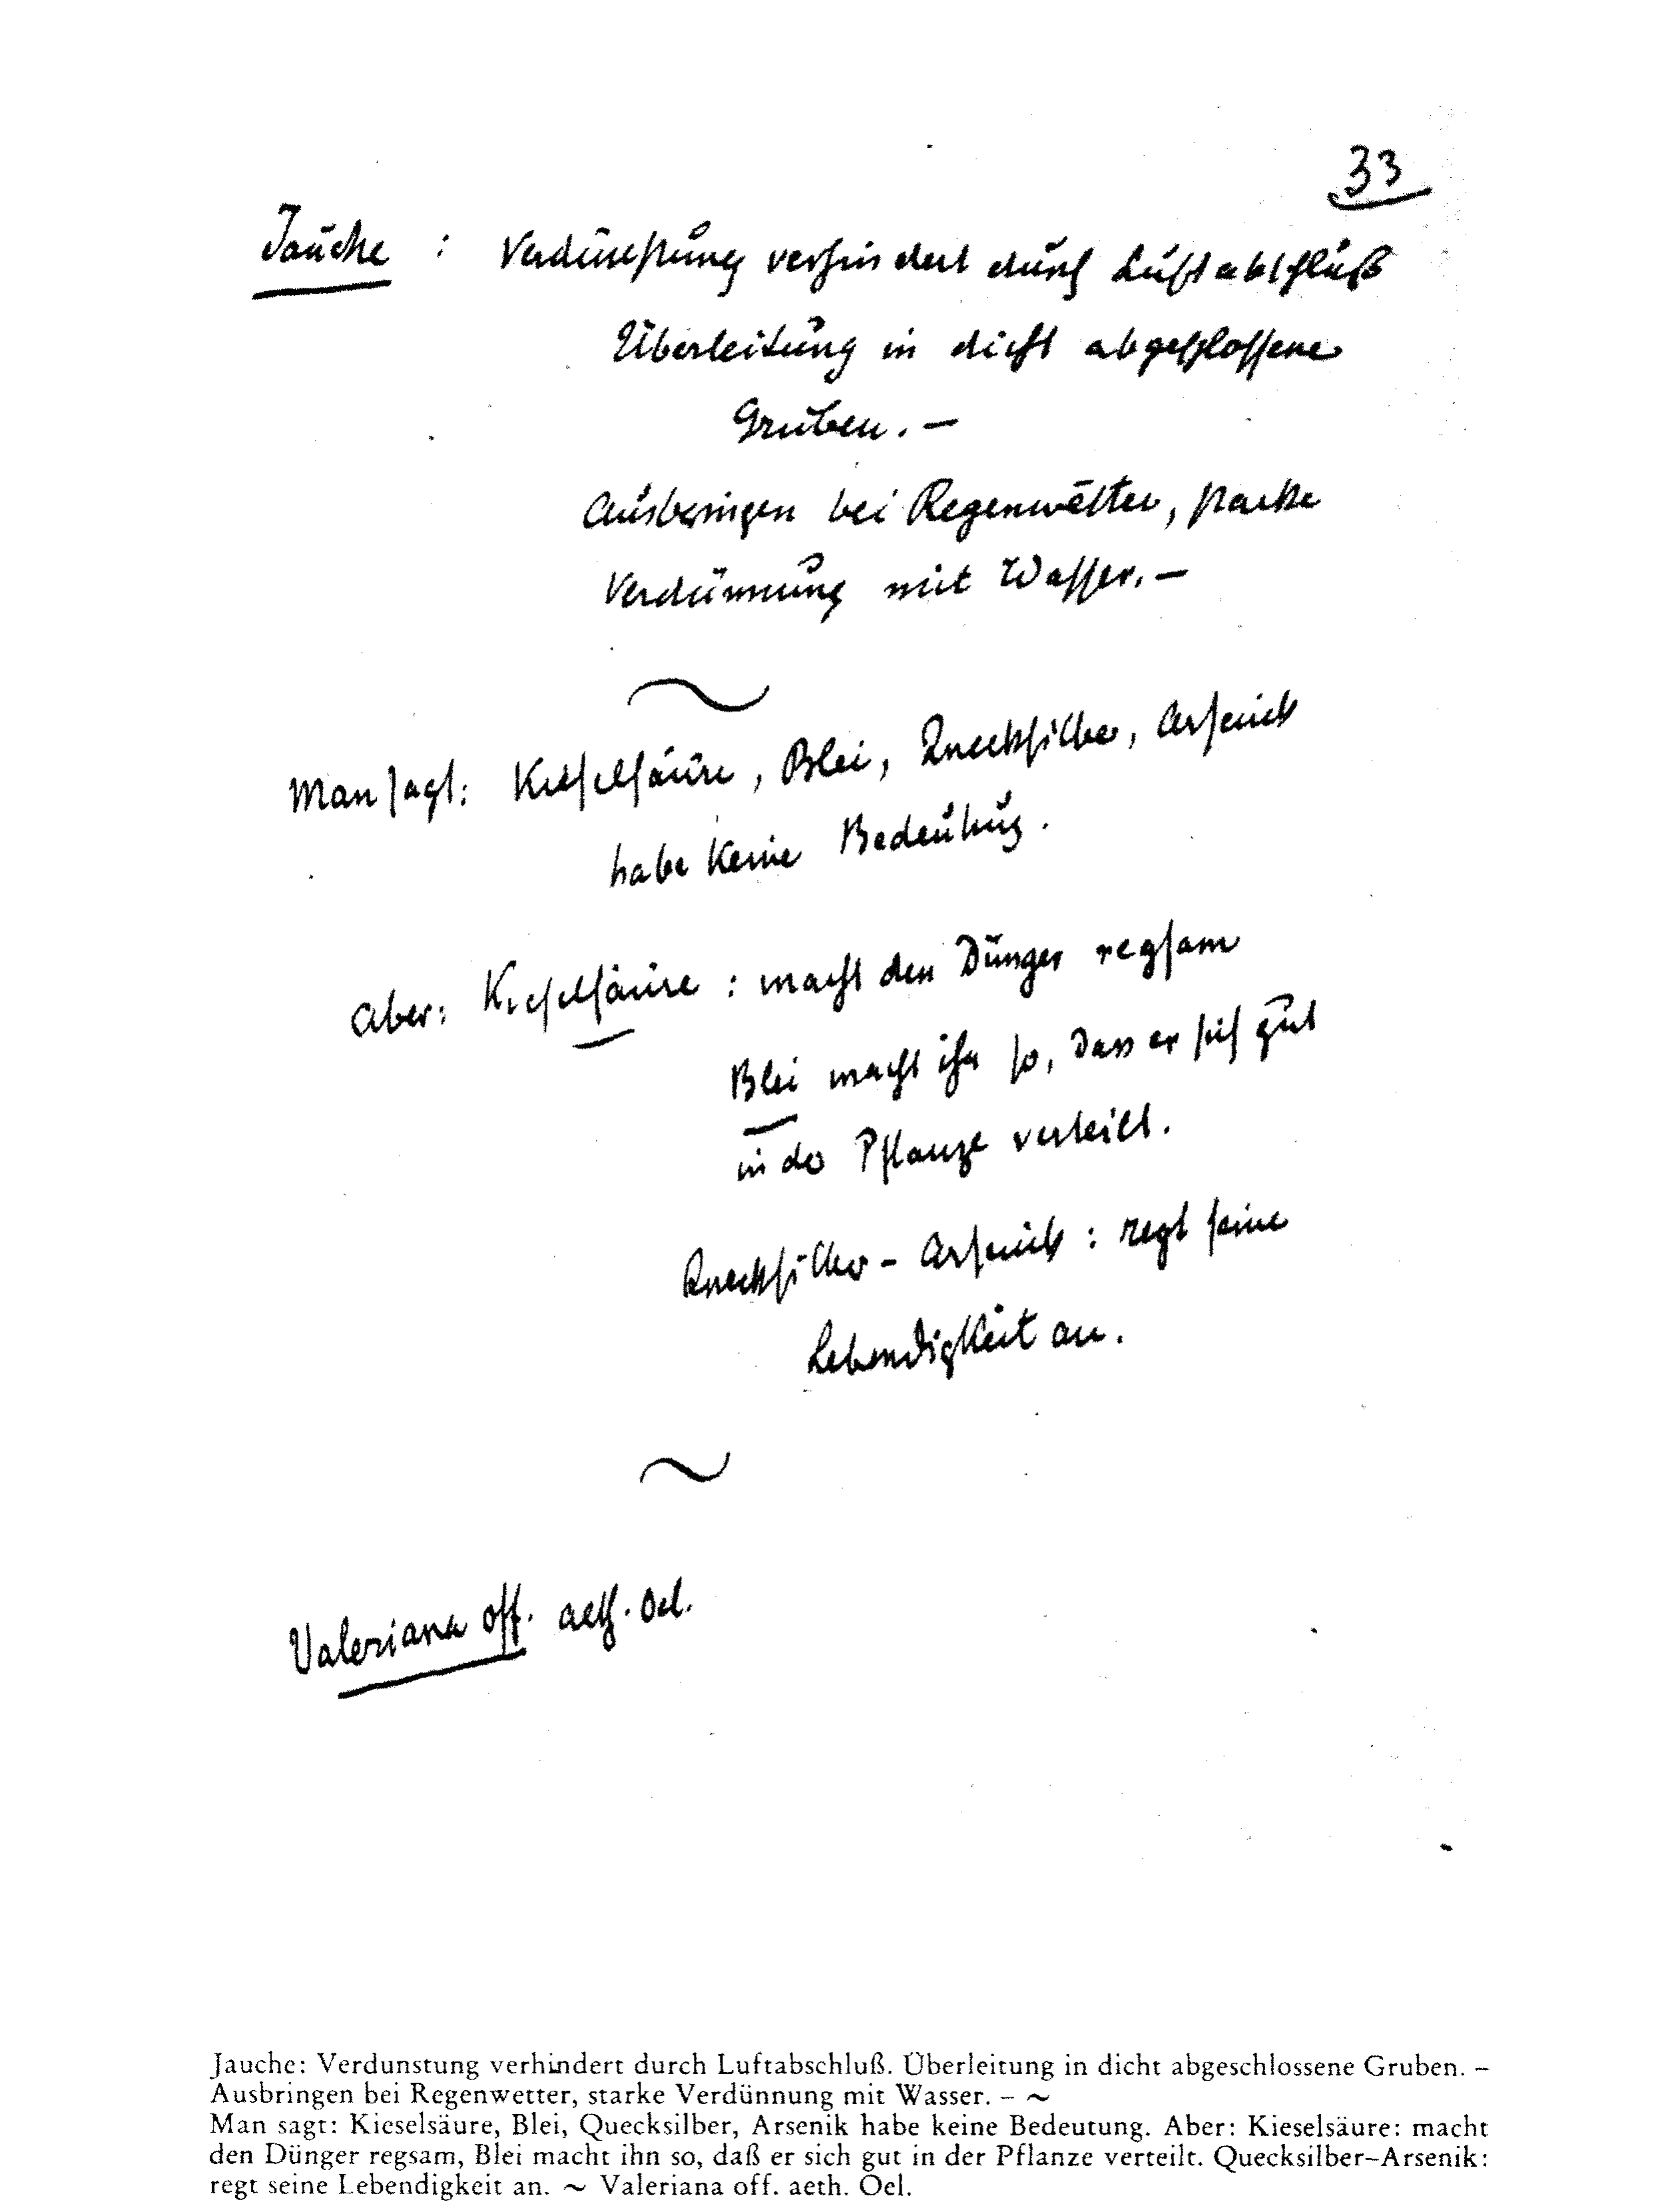 33
Jauche : Verdunstung verhindert durch Luftabschluß
Überleitung in dicht abgeschlossene
Gruben. –
Ausbringen bei Regenwetter, starke
Verdünnung mit Wasser. –
~
Man sagt: Kieselsäure, Blei, Quecksilber, Arsenick
habe keine Bedeutung.
Aber: Kieselsäure : macht den Dünger regsam
Blei macht ihn so, dass er sich gut
in der Pflanze verteilt.
Quecksilber – Arsenick : regt seine
Lebendigkeit an.
~
Valeriana off. aeth. Oel.
Jauche: Verdunstung verhindert durch Luftabschluß. Überleitung in dicht abgeschlossene Gruben. –
Ausbringen bei Regenwetter, starke Verdünnung mit Wasser. – ~
Man sagt: Kieselsäure, Blei, Quecksilber, Arsenik habe keine Bedeutung. Aber: Kieselsäure: macht
den Dünger regsam, Blei macht ihn so, daß er sich gut in der Pflanze verteilt. Quecksilber–Arsenik:
regt seine Lebendigkeit an. ~ Valeriana off. aeth. Oel.